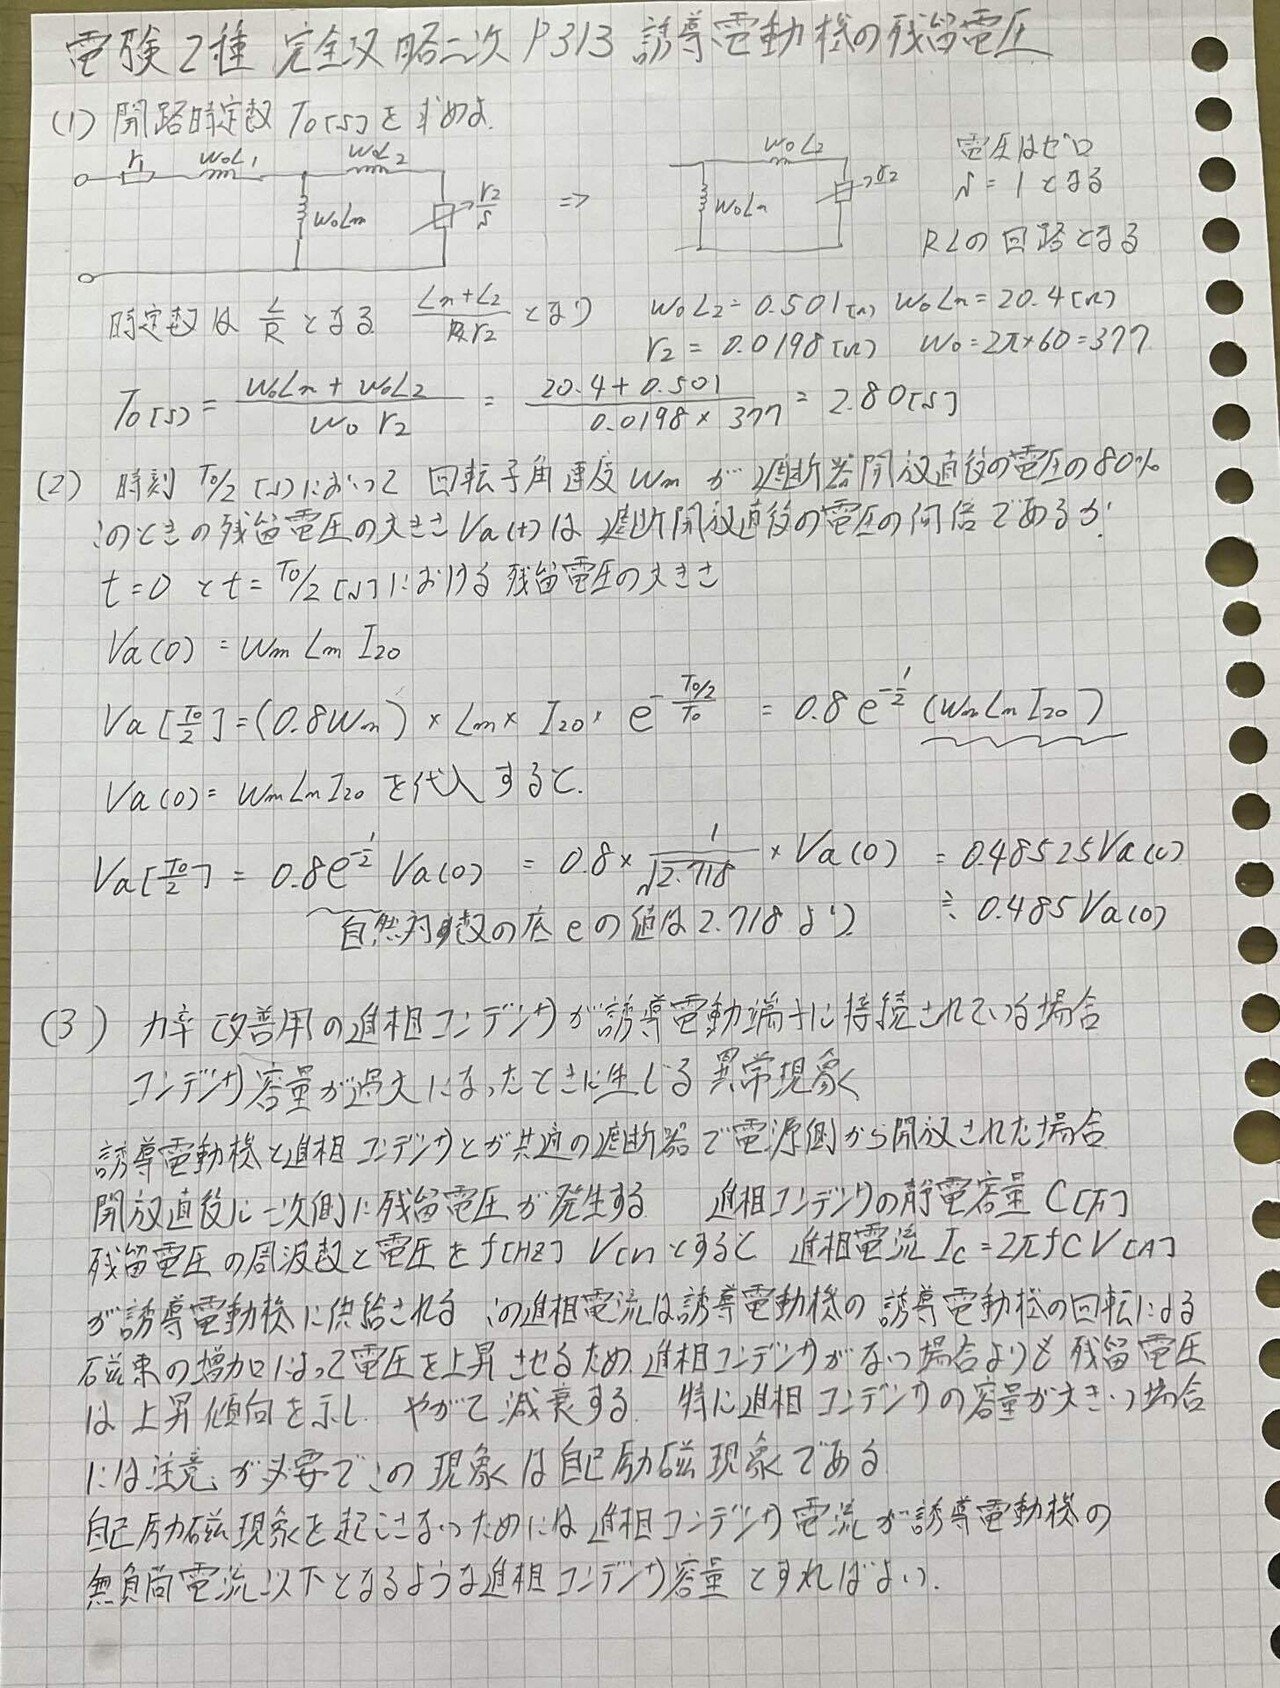 電験2種 完全攻略二次 P313 誘導電動機の残留電圧
(1) 開路時定数 T0[s]を求めよ.
r1 ω0L1 ω0L2 ω0Lm r2/s ⇒ ω0L2 ω0Lm r2
電圧はゼロ
s=1となる
RLの回路となる
時定数は L/R となる (Lm+L2)/r2 となり ω0L2=0.501[Ω] ω0Lm=20.4[Ω]
r2=0.0198[Ω] ω0=2π×60=377
T0[s] = (ω0Lm+ω0L2)/(ω0 r2) = (20.4+0.501)/(0.0198×377) = 2.80[s]
(2) 時刻 T0/2 [s]において 回転子角速度 ωm が 遮断器開放直後の電圧の80%
このときの残留電圧の大きさVa(t)は 遮断開放直後の電圧の何倍であるか.
t=0 とt=T0/2 [s]における残留電圧の大きさ
Va(0) = ωm Lm I20
Va[T0/2]=(0.8ωm)×Lm×I20×e^-(T0/2)/T0 = 0.8e^-1/2 (ωm Lm I20)
Va(0)= ωm Lm I20 を代入すると.
Va[T0/2] = 0.8e^-1/2 Va(0) = 0.8×1/√2.718 ×Va(0) = 0.48525Va(0)
自然対数の底eの値は2.718より ≒ 0.485Va(0)
(3) 力率改善用の進相コンデンサが誘導電動端子に接続されている場合
コンデンサ容量が過大になったときに生じる異常現象
誘導電動機と進相コンデンサとが共通の遮断器で電源側から開放された場合
開放直後に一次側に残留電圧が発生する 進相コンデンサの静電容量 C[F]
残留電圧の周波数と電圧をf[HZ] V[V]とすると 進相電流 Ic=2πfCV[A]
が誘導電動機に供給される この進相電流は誘導電動機の 誘導電動機の回転による
磁束の増加によって電圧を上昇させるため 進相コンデンサがない場合よりも残留電圧
は上昇傾向を示し やがて減衰する 特に進相コンデンサの容量が大きい場合
には注意が必要でこの現象は自己励磁現象である
自己励磁現象を起こさないためには進相コンデンサ電流が誘導電動機の
無負荷電流以下となるような進相コンデンサ容量とすればよい.